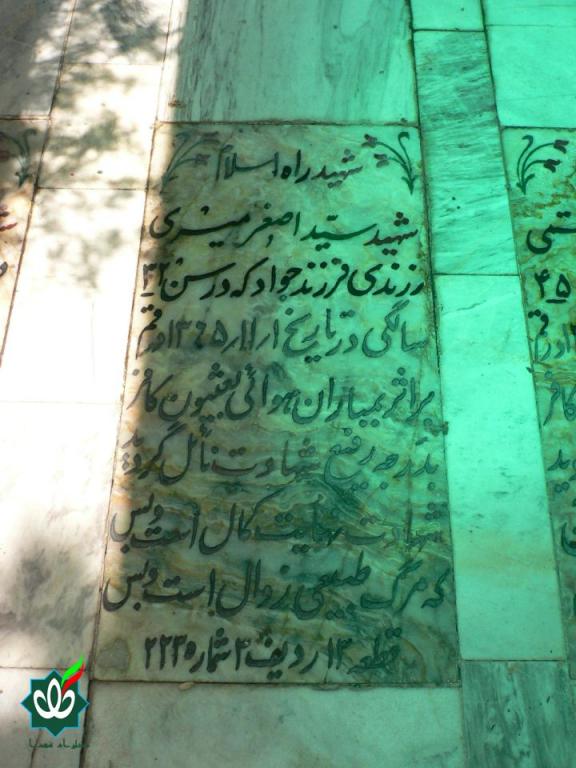 شهید راه اسلام
شهید سیّد اصغر میری
زرندی فرزند جواد که در سن ۳۲
سالگی در تاریخ ۱ر۱۱ر۱۳۶۵ در قم
براثر بمباران هوائی بعثیون کافر
بدرجه رفیع شهادت نائل گردید
شهادت نهایت کمال است و بس
که مرگ طبیعی زوال است و بس
قطعه ۱۳ ردیف ۳ شماره ۲۲۳